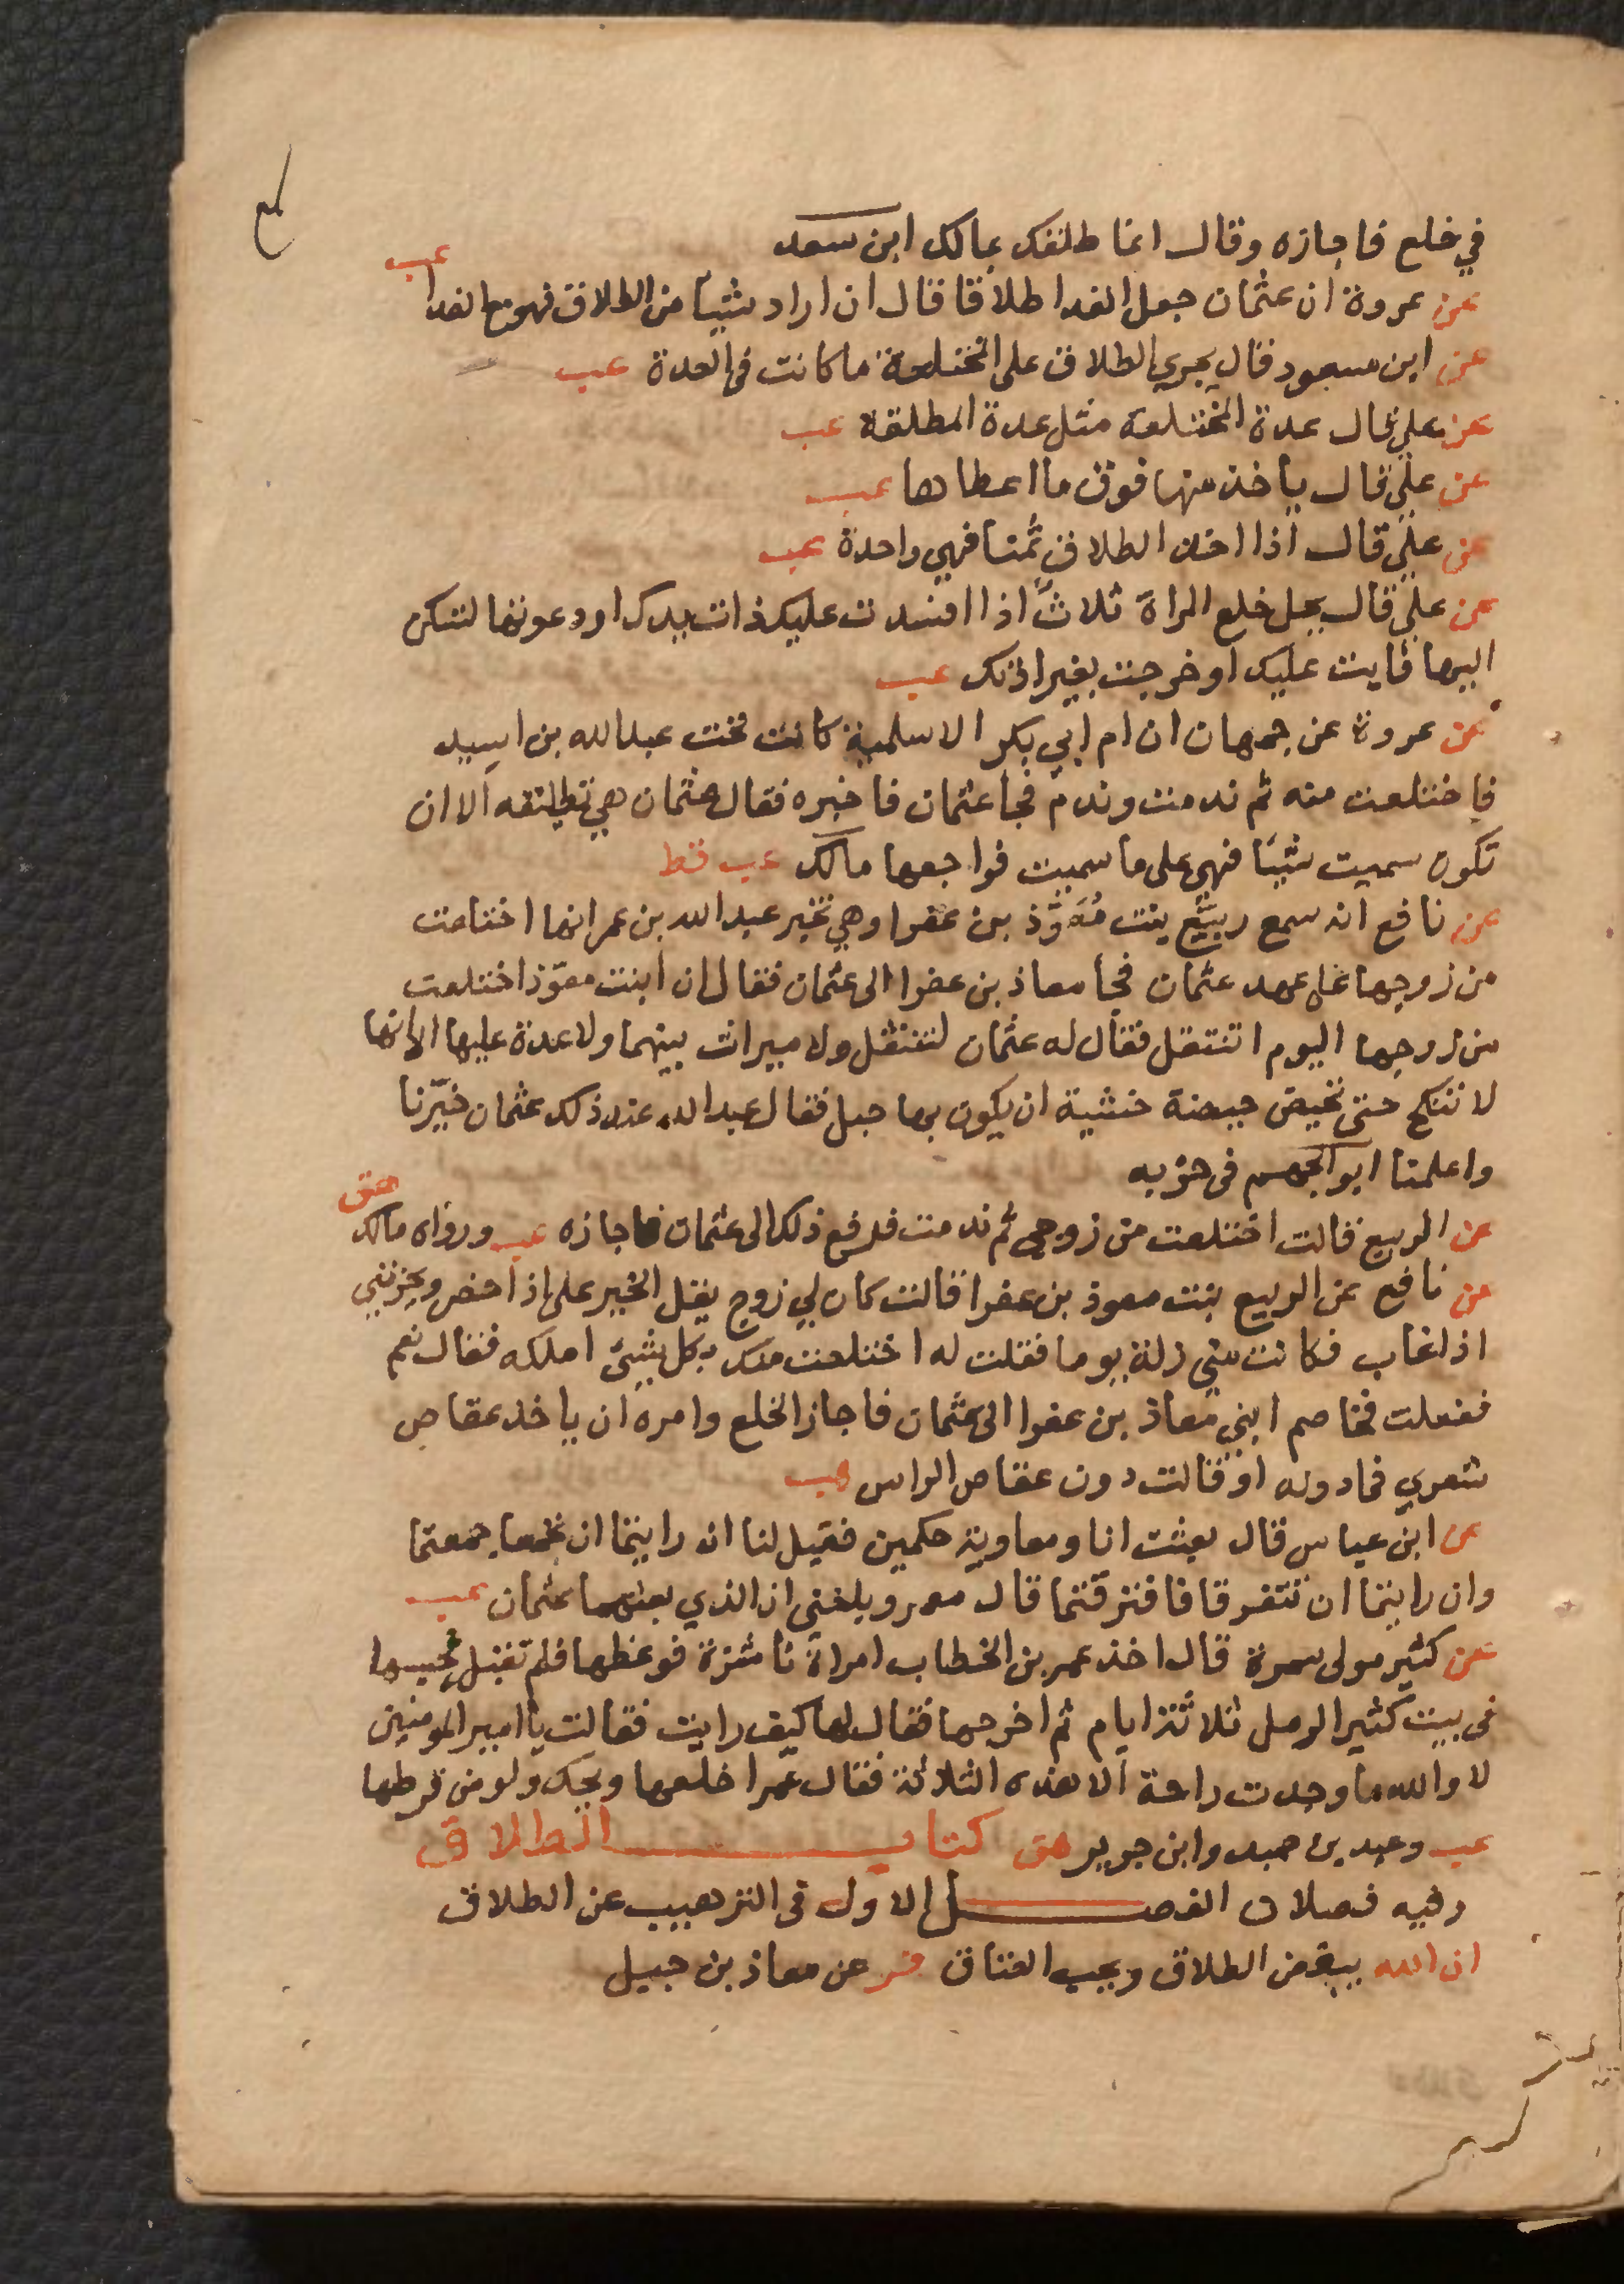 في خلع فاجازه وقال انما طلقك بمالك ابن سعد
عن عروة ان عثمان جعل الفدا طلاقا قال ان اراد شيئا من الطلاق فهو مع الفدا عب
عن ابن مسعود قال يجري الطلاق على المختلعة ما كانت في العدة عب
عن علي قال عدة المختلعة مثل عدة المطلقة عب
عن علي قال ياخذ منها فوق ما اعطاها عب
عن علي قال اذا اخذ الطلاق ثمنا فهي واحدة عب
عن علي قال يحل خلع المراة ثلاث اذا افسدت عليك ذات يدك او دعوتها لتسكن
اليها فابت عليك او خرجت بغير اذنك عب
عن عروة عن جمهان ان ام ابي بكر الاسلمية كانت تحت عبد الله بن اسيد
فاختلعت منه ثم ندمت وندم فجا عثمان فاخبره فقال عثمان هي تطليقه الا ان
تكون سميت شيئا فهي على ما سميت فراجعها مالك عب قط
عن نافع انه سمع ربيع بنت معوذ بن عفرا وهي تخبر عبد الله بن عمر انها اختلعت
من زوجها على عهد عثمان فجا معاذ بن عفرا الى عثمان فقال ان ابنت معوّذ اختلعت
من زوجها اليوم اتنتقل فقال له عثمان لتنتقل ولا ميراث بينهما ولا عدة عليها الا انها
لا تنكح حتى تحيض حيضة خشية ان يكون بها حبل فقال عبد الله عند ذلك عثمان خيّرنا
واعلمنا ابو الجهم في حزبه
عن الربيع قالت اختلعت من زوجي ثم ندمت فدفع ذلك الى عثمان فاجازه عب ورواه مالك هق
عن نافع عن الربيع بنت معوذ بن عفرا قالت كان لي زوج يقل الخير على اذا حضر ويحزنني
اذا غاب فكانت مني زلة يوما فقلت له اختلعت منك بكل شيئ املكه فقال نعم
ففعلت فخاصم ابني معاذ بن عفرا الى عثمان فاجاز الخلع وامره ان ياخذ عقاص
شعري فما دونه او قالت دون عقاص الراس عب
عن ابن عباس قال بعثت انا ومعاوية حكمين فقيل لنا ان رايتما ان تجمعا جمعتما
وان رايتما ان تتفرقا فافترقتما قال معمر وبلغني ان الذي بعثهما عثمان عب
عن كثير مولى سمرة قال اخذ عمر بن الخطاب امراة ناشزة فوعظها فلم تقبل فحبسها
في بيت كثير الرمل ثلاثة ايام ثم اخرجها فقال لها كيف رايت فقالت يا امير المومنين
لا والله ما وجدت راحة الا هذه الثلاثة فقال عمر اخلعها ويحك ولو من قرطها
عب وعبد بن حميد وابن جرير هق كتاب الطلاق
وفيه فصلان الفصل الاول في الترهيب عن الطلاق
ان الله يبغض الطلاق ويحب العتاق فر عن معاذ بن جبيل